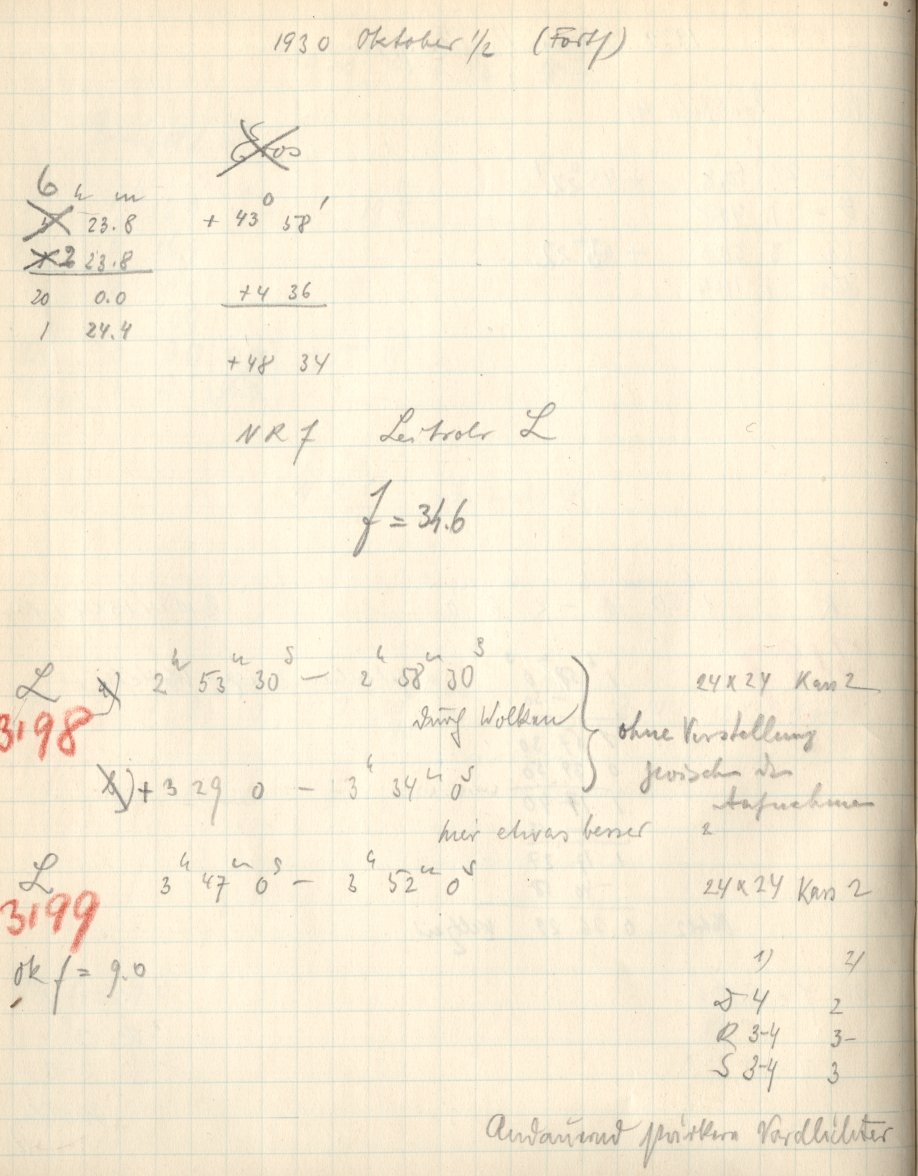 1930 Oktober 1/2 (Fortf)
Eros
6 h m
5 23.8 + 43° 58'
+2 23.8
20 0.0 +4 36
1 24.4
+48 34
NR f Leitrohr L
f = 34.6
L a) 2h 53m 30s – 2h 58m 30s 24x24 Kass 2
3198 durch Wolken ohne Verstellung
zwischen den
b) + 3 29 0 – 3h 34m 0s
Aufnahmen
hier etwas besser
L 3h 47m 0s – 3h 52m 0s 24x24 Kass 2
3199
ok f = 9.0
1) 2)
D 4 2
R 3-4 3-
S 3-4 3
Andauernd stärkere Nordlichter